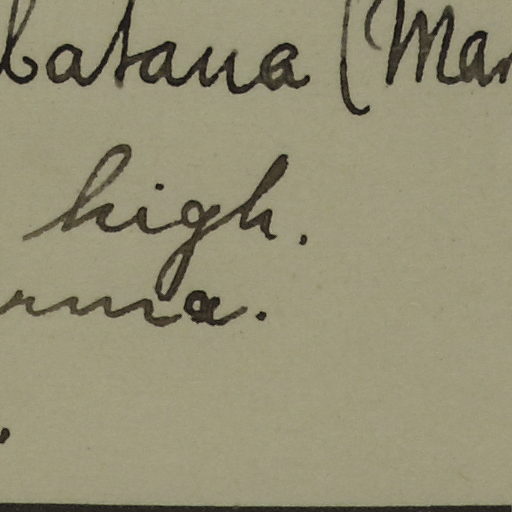 batana (Mar
high.
rma.